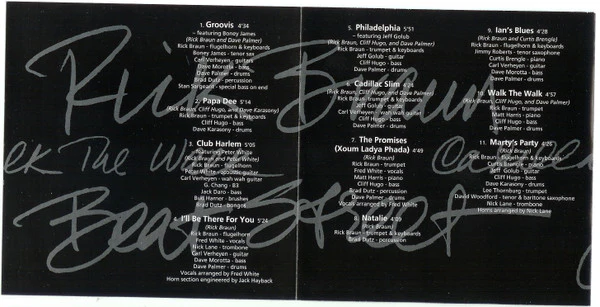 1. Groovis 4'34
~ featuring Boney James
(Rick Braun and Dave Palmer)
Rick Braun - flugelhorn & keyboards
Boney James - tenor sax
Carl Verheyen - guitar
Dave Morotta - bass
Dave Palmer - drums
Brad Dutz - percussion
Stan Sargeant - special bass on end
2. Papa Dee 5'14
(Rick Braun, Cliff Hugo, and Dave Karasony)
Rick Braun - trumpet & keyboards
Cliff Hugo - bass
Dave Karasony - drums
3. Club Harlem 5'05
~ featuring Peter White
(Rick Braun and Peter White)
Rick Braun - flugelhorn
Peter White - acoustic guitar
Carl Verheyen - wah wah guitar
G. Chang - B3
Jack Daro - bass
Burt Hamer - brushes
Brad Dutz - bongos
4. I'll Be There For You 5'24
(Rick Braun)
Rick Braun - flugelhorn
Fred White - vocals
Nick Lane - trombone
Carl Verheyen - guitar
Dave Morotta - bass
Dave Palmer - drums
Vocals arranged by Fred White
Horn section engineered by Jack Hayback
5. Philadelphia 5'51
~ featuring Jeff Golub
(Rick Braun, Cliff Hugo, and Dave Palmer)
Rick Braun - flugelhorn & keyboards
Jeff Golub - guitar
Cliff Hugo - bass
Dave Palmer - drums
Cadillac Slim
(Rick Braun, Cliff Hugo, and Dave Palmer)
Rick Braun - trumpet
Jeff Golub - guitar
Cliff Hugo - bass
Dave Palmer - drums
7. The Promises
(Xoum Ladya Phada) 4'49
(Rick Braun)
Rick Braun - trumpet
Fred White - vocals
Matt Harris - piano
Cliff Hugo - bass
Brad Dutz - percussion
Dave Palmer - drums
Vocals arranged by Fred White
Natalie
(Rick Braun)
Rick Braun - trumpet & keyboards
Brad Dutz - percussion
9. Ian's Blues 4'28
(Rick Braun and Curtis Brengle)
Rick Braun - flugelhorn & keyboards
Jimmy Roberts - tenor saxophone
Curtis Brengle - piano
Carl Verheyen - guitar
Cliff Hugo - bass
Dave Palmer - drums
10. Walk The Walk 4'57
(Rick Braun, Cliff Hugo, and Dave Palmer)
Rick Braun - trumpet
Matt Harris - piano
Cliff Hugo - bass
Dave Palmer - drums
11. Marty's Party 4'26
(Rick Braun)
Rick Braun - flugelhorn & keyboards
Curtis Brengle - piano
Cliff Hugo - bass
Dave Karasony - drums
Lee Thornburg - trumpet
David Woodford - tenor & baritone saxophone
Nick Lane - trombone
Horns arranged by Nick Lane
Rick Braun
Beat Street